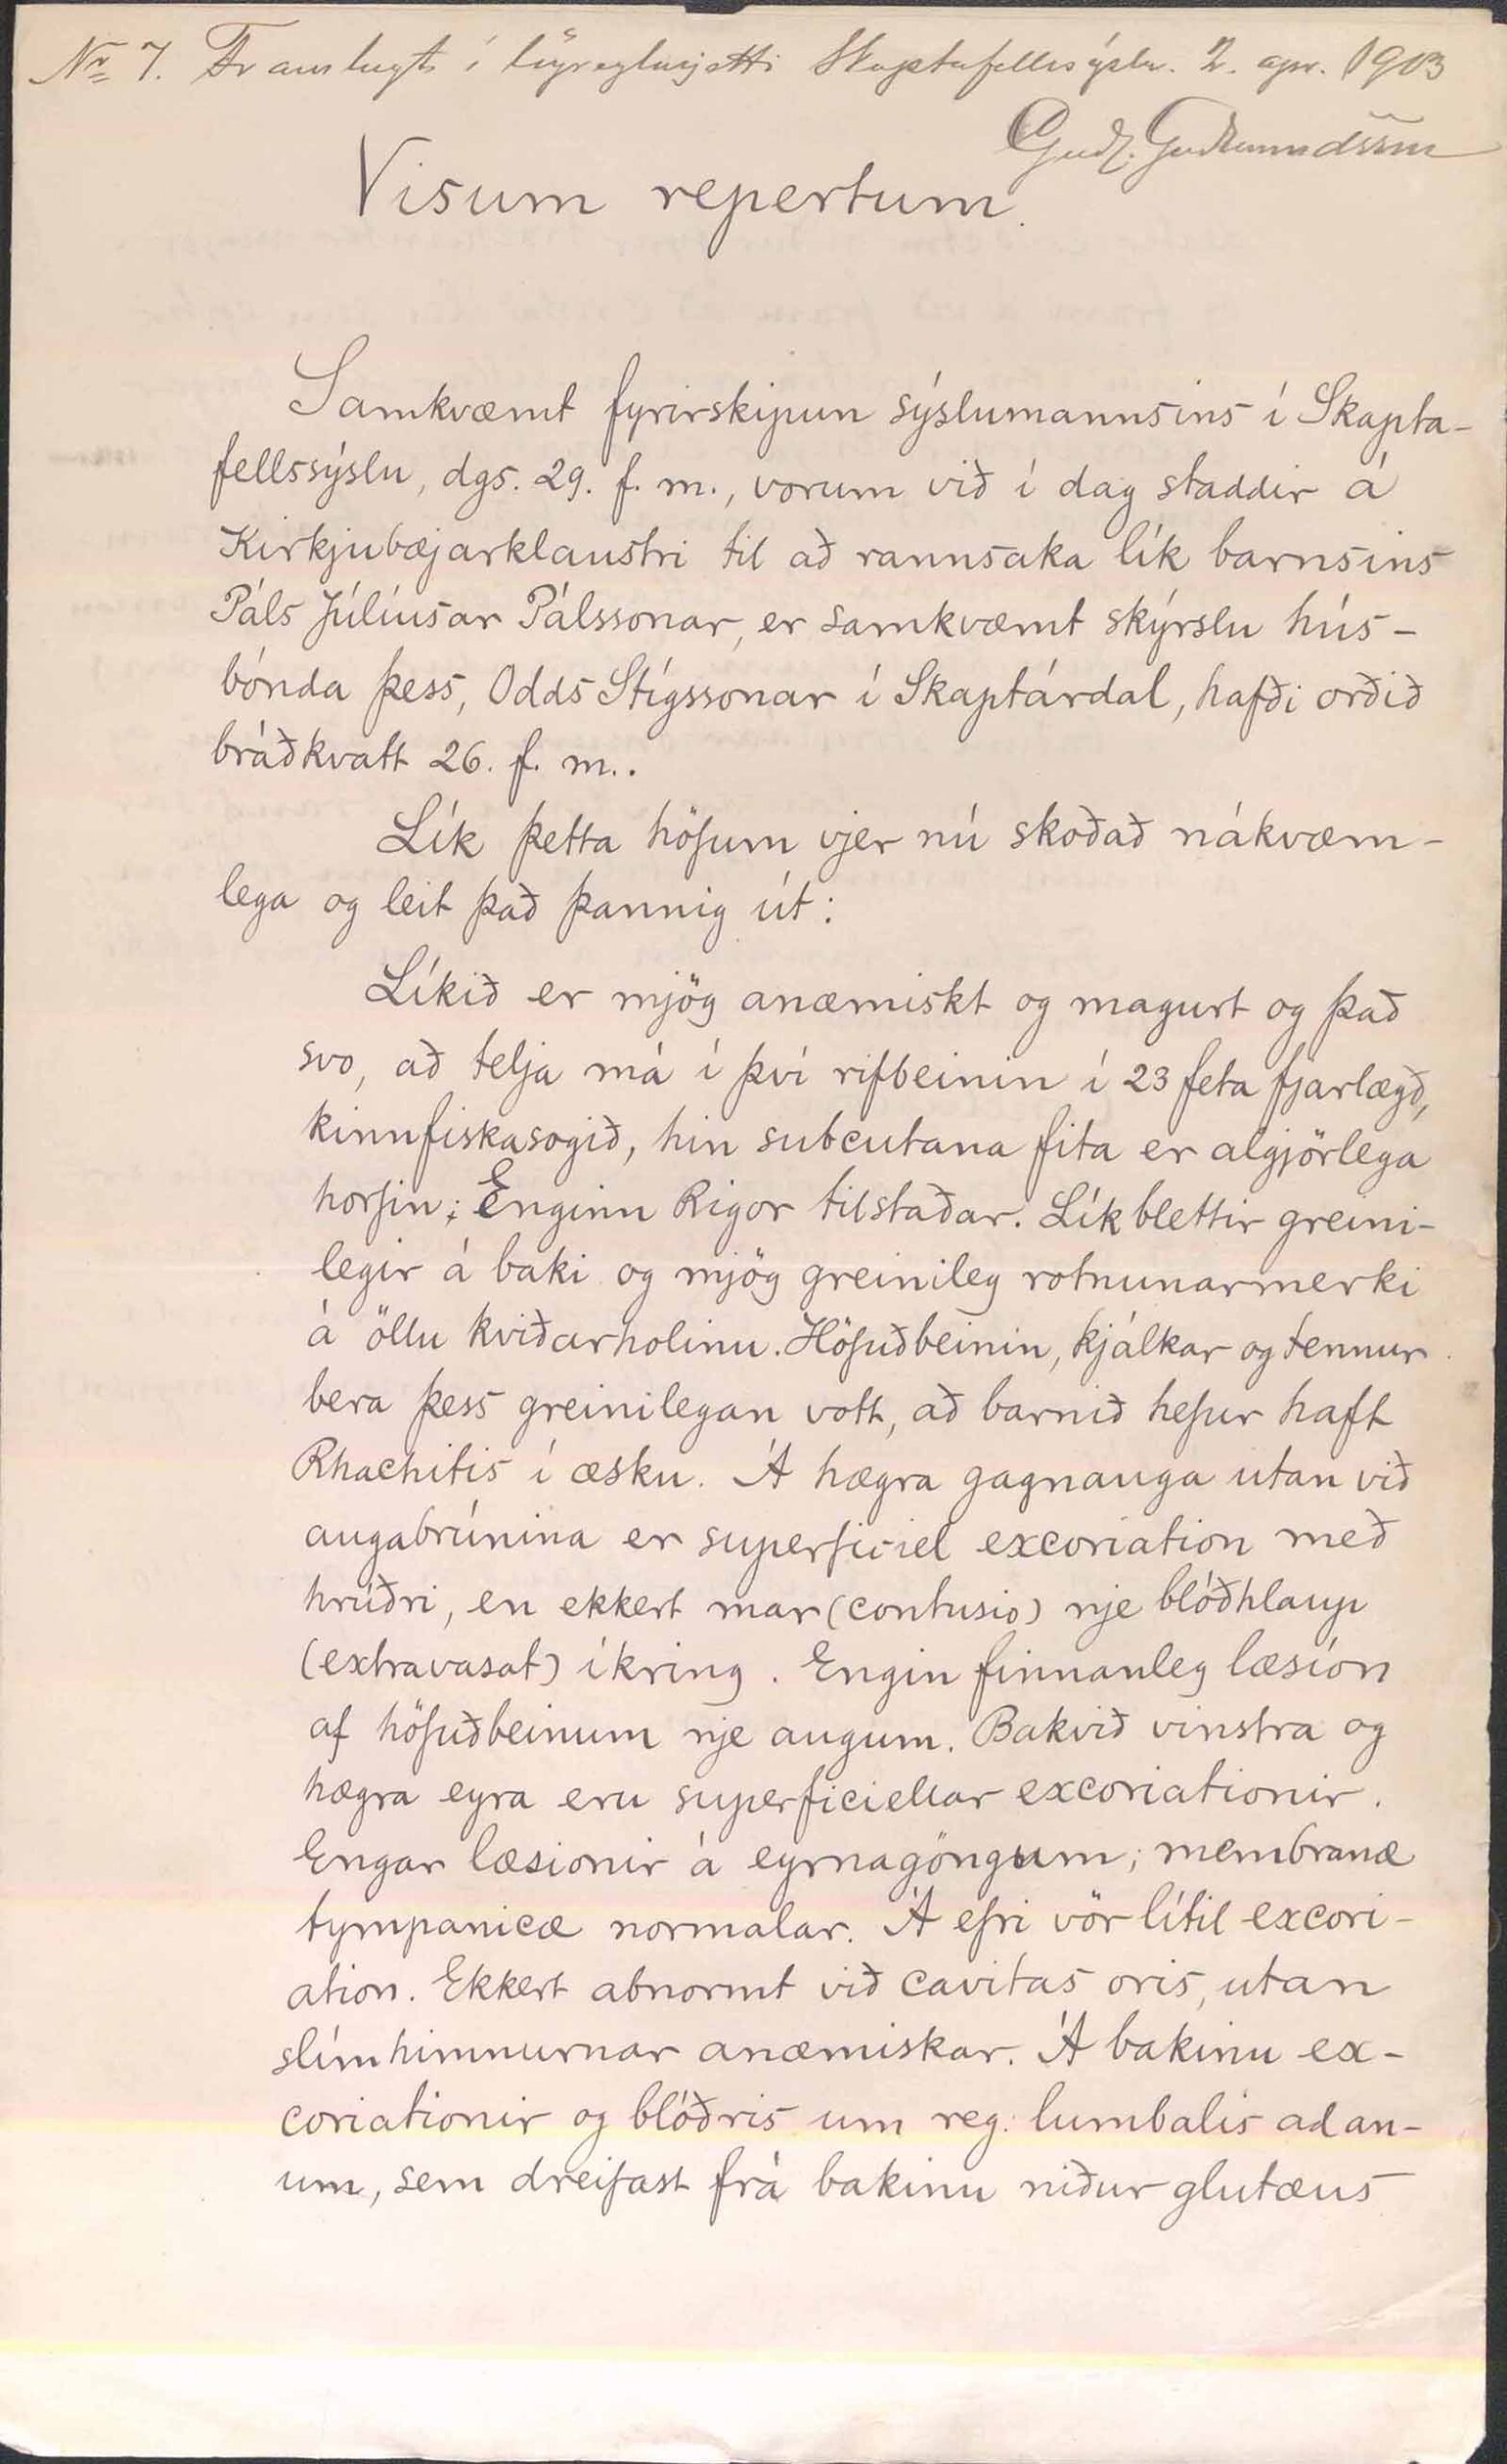 Nr 7. Framlagt í lögreglurjetti Skaptafellssýslu. 2. apr. 1903
Guðl. Guðmundsson
Visum repertum.
Samkvæmt fyrirskipun sýslumannsins í Skapta-
fellssýslu, dgs. 29. f. m., vorum við í dag staddir á
Kirkjubæjarklaustri til að rannsaka lík barnsins
Páls Júlíusar Pálssonar, er samkvæmt skýrslu hús-
bónda þess, Odds Stígssonar í Skaptárdal, hafði orðið
bráðkvatt 26. f. m..
Lík þetta höfum vjer nú skoðað nákvæm-
lega og leit það þannig út:
Líkið er mjög anæmiskt og magurt og það
svo, að telja má í því rifbeinin í 23 feta fjarlægð,
kinnfiskasogið, hin subcutana fita er algjörlega
horfin; Enginn Rigor tilstaðar. Líkblettir greini-
legir á baki og mjög greinileg rotnunarmerki
á öllu kviðarholinu. Höfuðbeinin, kjálkar og tennur
bera þess greinilegan vott, að barnið hefur haft
Rhachitis í æsku. Á hægra gagnauga utan við
augabrúnina er superficiel excoriation með
hrúðri, en ekkert mar (contusio) nje blóðhlaup
(extravasat) íkring. Engin finnanleg læsíon
af höfuðbeinum nje augum. Bakvið vinstra og
hægra eyra eru superficiellar excoriationir.
Engar læsionir á eyrnagöngum; membranæ
tympanicæ normalar. Á efri vör lítil excori-
ation. Ekkert abnormt við cavitas oris, utan
slímhimnurnar anæmiskar. Á bakinu ex-
coriationir og blóðris um reg. lumbalis ad an-
um, sem dreifast frá bakinu niður glutæus